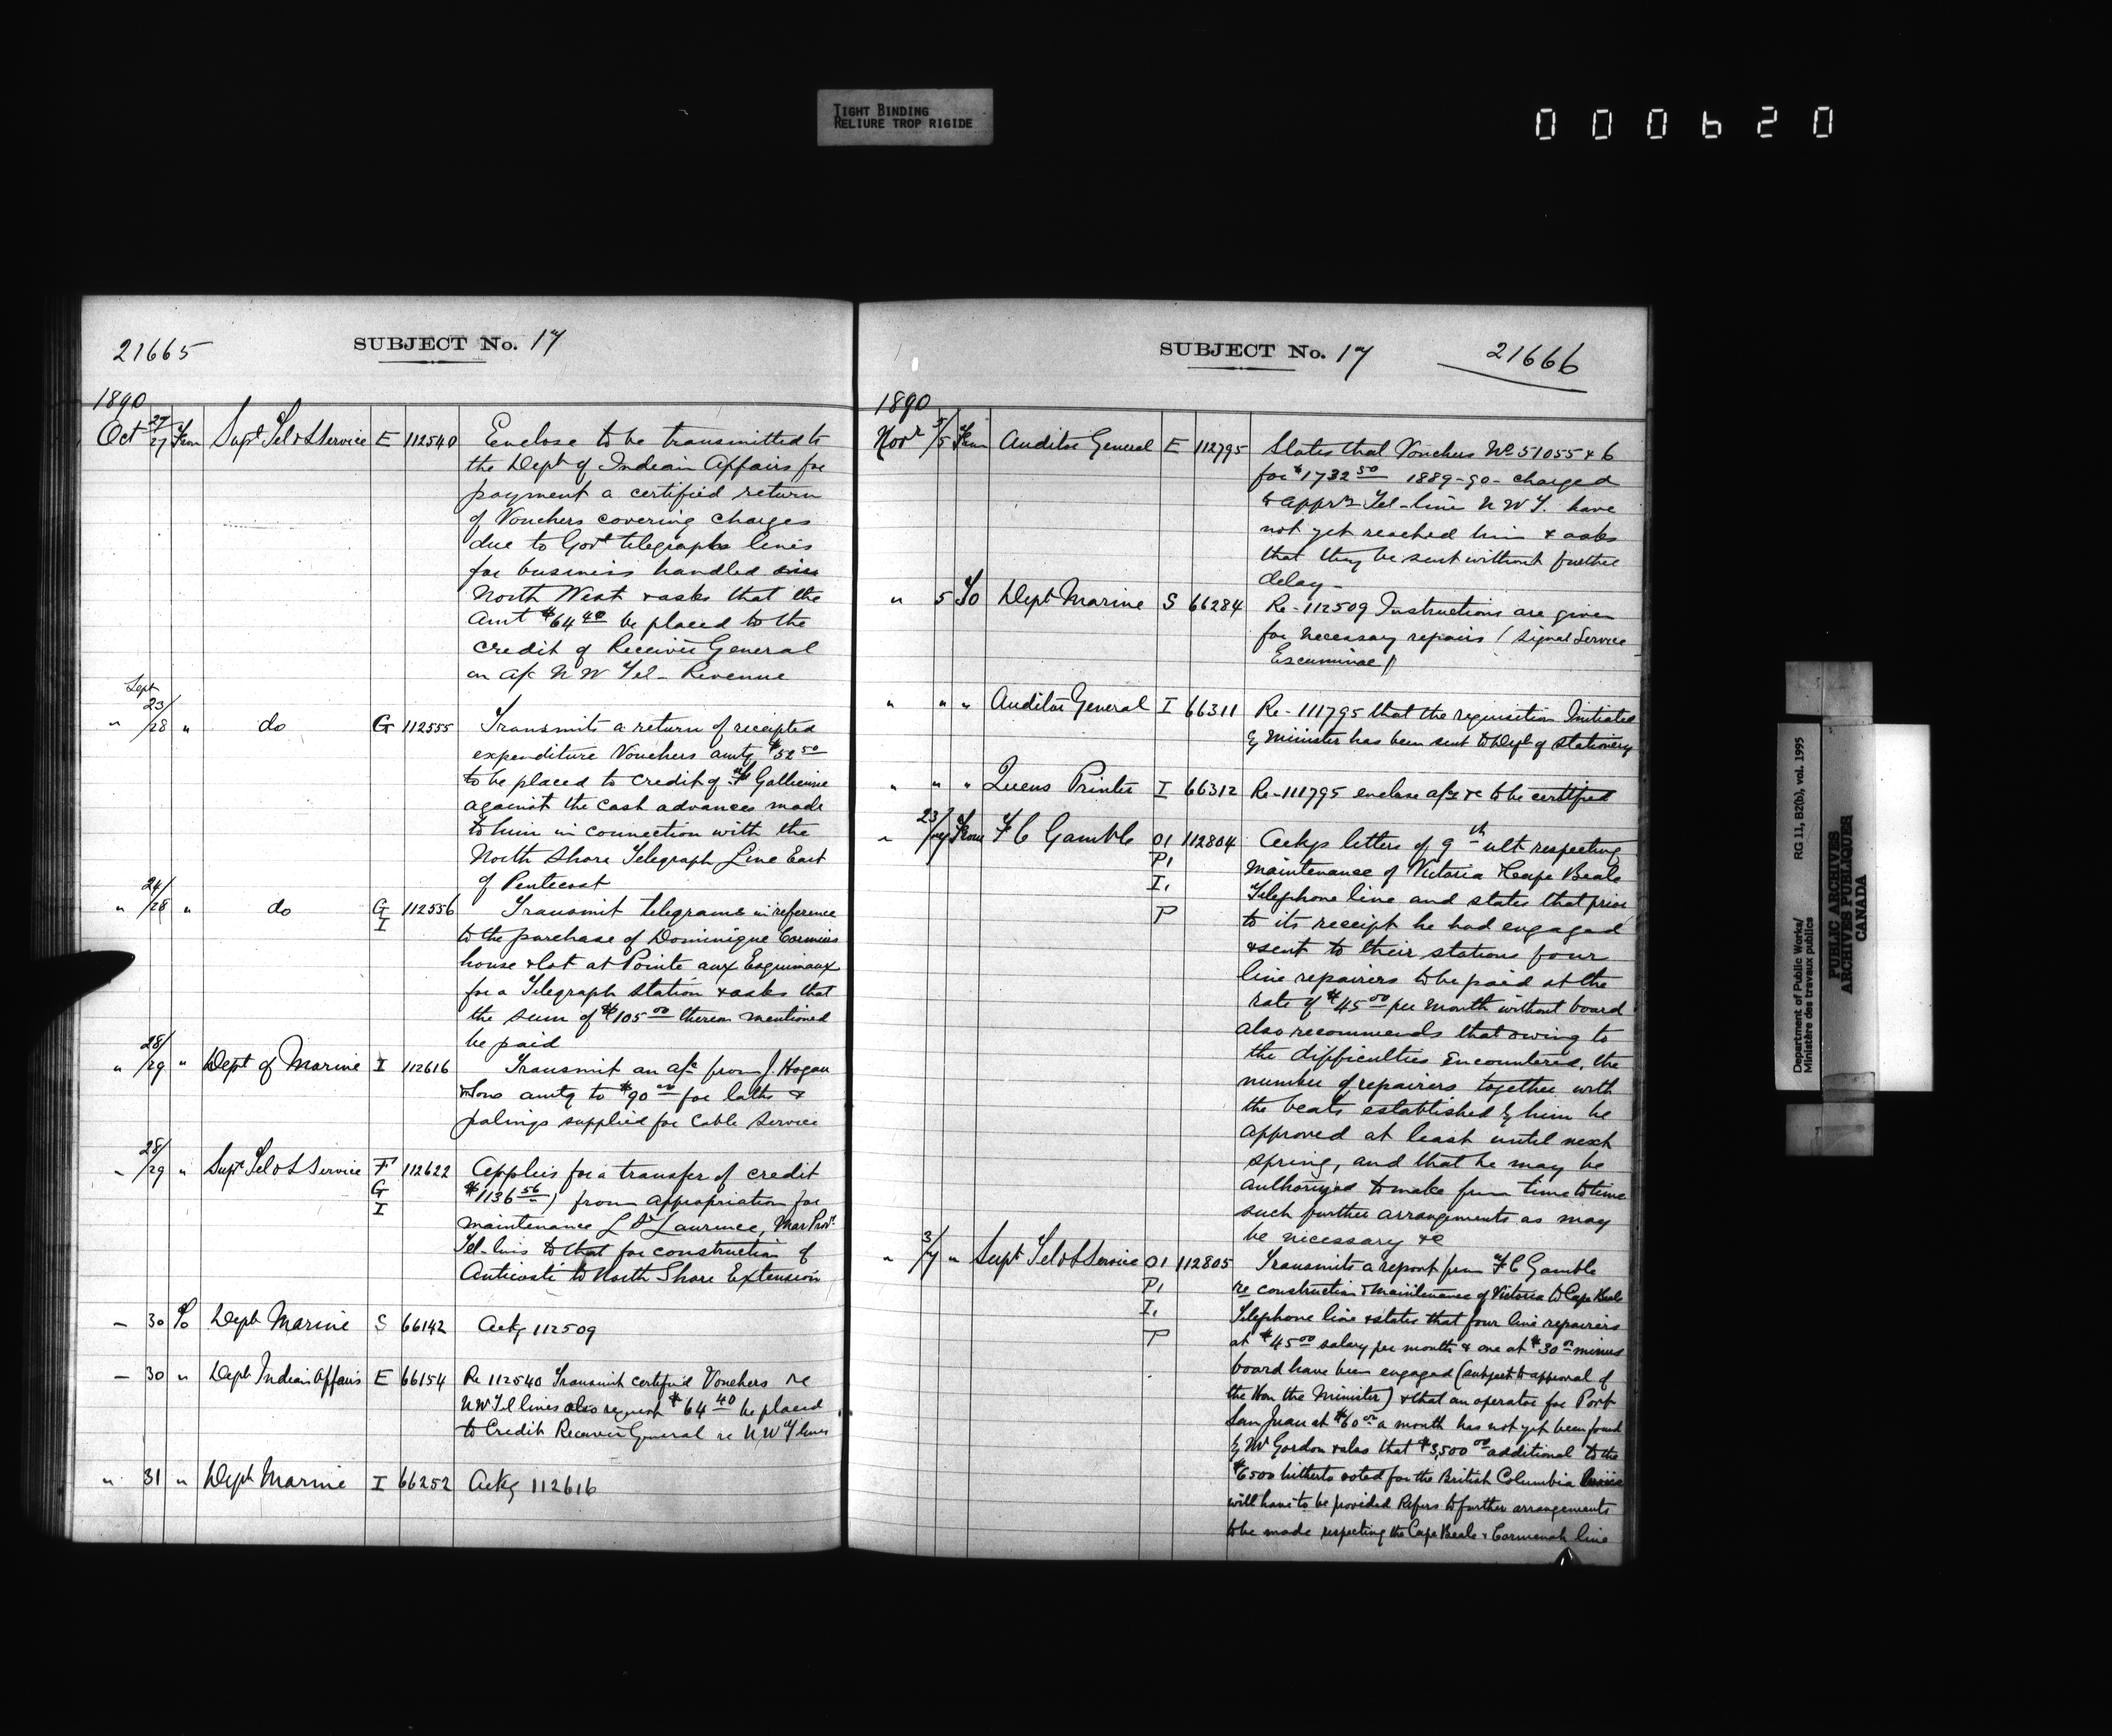 TIGHT BINDING
RELIURE TROP RIGIDE
000620
21665
SUBJECT No. 17
1890
Oct 27/27 From Supt Tel & S Service E 112540 Enclose to be transmitted to
the Dept of Indian Affairs for
payment a certified return
of Vouchers covering charges
due to Govt telegraph lines
for business handled
North West & asks that the
Amt $64 40 be placed to the
credit of Receiver General
on a/c N W Tel- Revenue
Sept
" 23/28 " do G 112555 Transmits a return of receipted
expenditure Vouchers amtg $52 50
to be placed to credit of Gallienne
against the cash advances made
to him in connection with the
North Shore Telegraph Line East
of Pentecost
" 24/28 " do G 112556 Transmit telegrams in reference
I to the purchase of Dominique Cormiers
house & lot at Pointe aux Esquimaux
for a Telegraph Station & asks that
the sum of $105 00 thereon mentioned
be paid
" 28/29 " Dept of Marine I 112616 Transmit an a/c from J. Hogan
& Sons amtg to $90 00 for laths &
palings supplied for Cable Service
" 28/29 " Supt Tel & S Service F 112622 Applies for a transfer of credit
G $1136 56) from appropriation for
I maintenance L St Laurence, Mar Prov
Tel-lines to that for construction of
Anticosti to North Shore Extension
– 30 To Dept Marine S 66142 Ackg 112509
– 30 " Dept Indian Affairs E 66154 Re 112540 Transmit certified Vouchers re
N W Tel lines also request $64 40 be placed
to Credit Receiver General re N W T lines
" 31 " Dept Marine I 66252 Ackg 112616
SUBJECT No. 17
21666
1890
Novr 3/5 From Auditor General E 112795 States that Vouchers No 51055 & 6
for $1732 50 1889-90- charged
to apprn Tel-line N W T. have
not yet reached him & asks
that they be sent without further
delay-
" 5 To Dept Marine S 66284 Re-112509 Instructions are given
for necessary repairs (Signal Service
Escuminac)
" " " Auditor General I 66311 Re-111795 that the requisition Initiated
by Minister has been sent to Dept of Stationery
" " " Queens Printer I 66312 Re-111795 enclose a/cs &c to be certified
" 23/ From F C Gamble O1 112804 Ackgs letters of 9th ult respecting
P1 Maintenance of Victoria & Cape Beale
I, Telephone line and states that prior
P to its receipt he had engaged
& sent to their stations four
line repairers to be paid at the
rate of $45 00 per month without board
also recommends that owing to
the difficulties encountered, the
number of repairers together with
the beats established by him be
approved at least until next
spring, and that he may be
authorized to make from time to time
such further arrangements as may
be necessary &c
" 3/7 " Supt Tel & S Service O1 112805 Transmits a report from F C Gamble
P, re construction & maintenance of Victoria to Cape Beale
I, Telephone line & states that four line repairers
P at $45 00 salary per month & one at $30 00 minus
board have been engaged (subject to approval of
the Hon the Minister) & that an operator for Port
San Juan at $60 00 a month has not yet been found
by Mr Gordon & also that $3,500 00 additional to the
$6500 hitherto voted for the British Columbia
will have to be provided Refers to further arrangements
to be made respecting the Cape Beale & Carmanah line
Department of Public Works/
Ministère des travaux publics
RG 11, B2(b), vol. 1995
PUBLIC ARCHIVES
ARCHIVES PUBLIQUES
CANADA